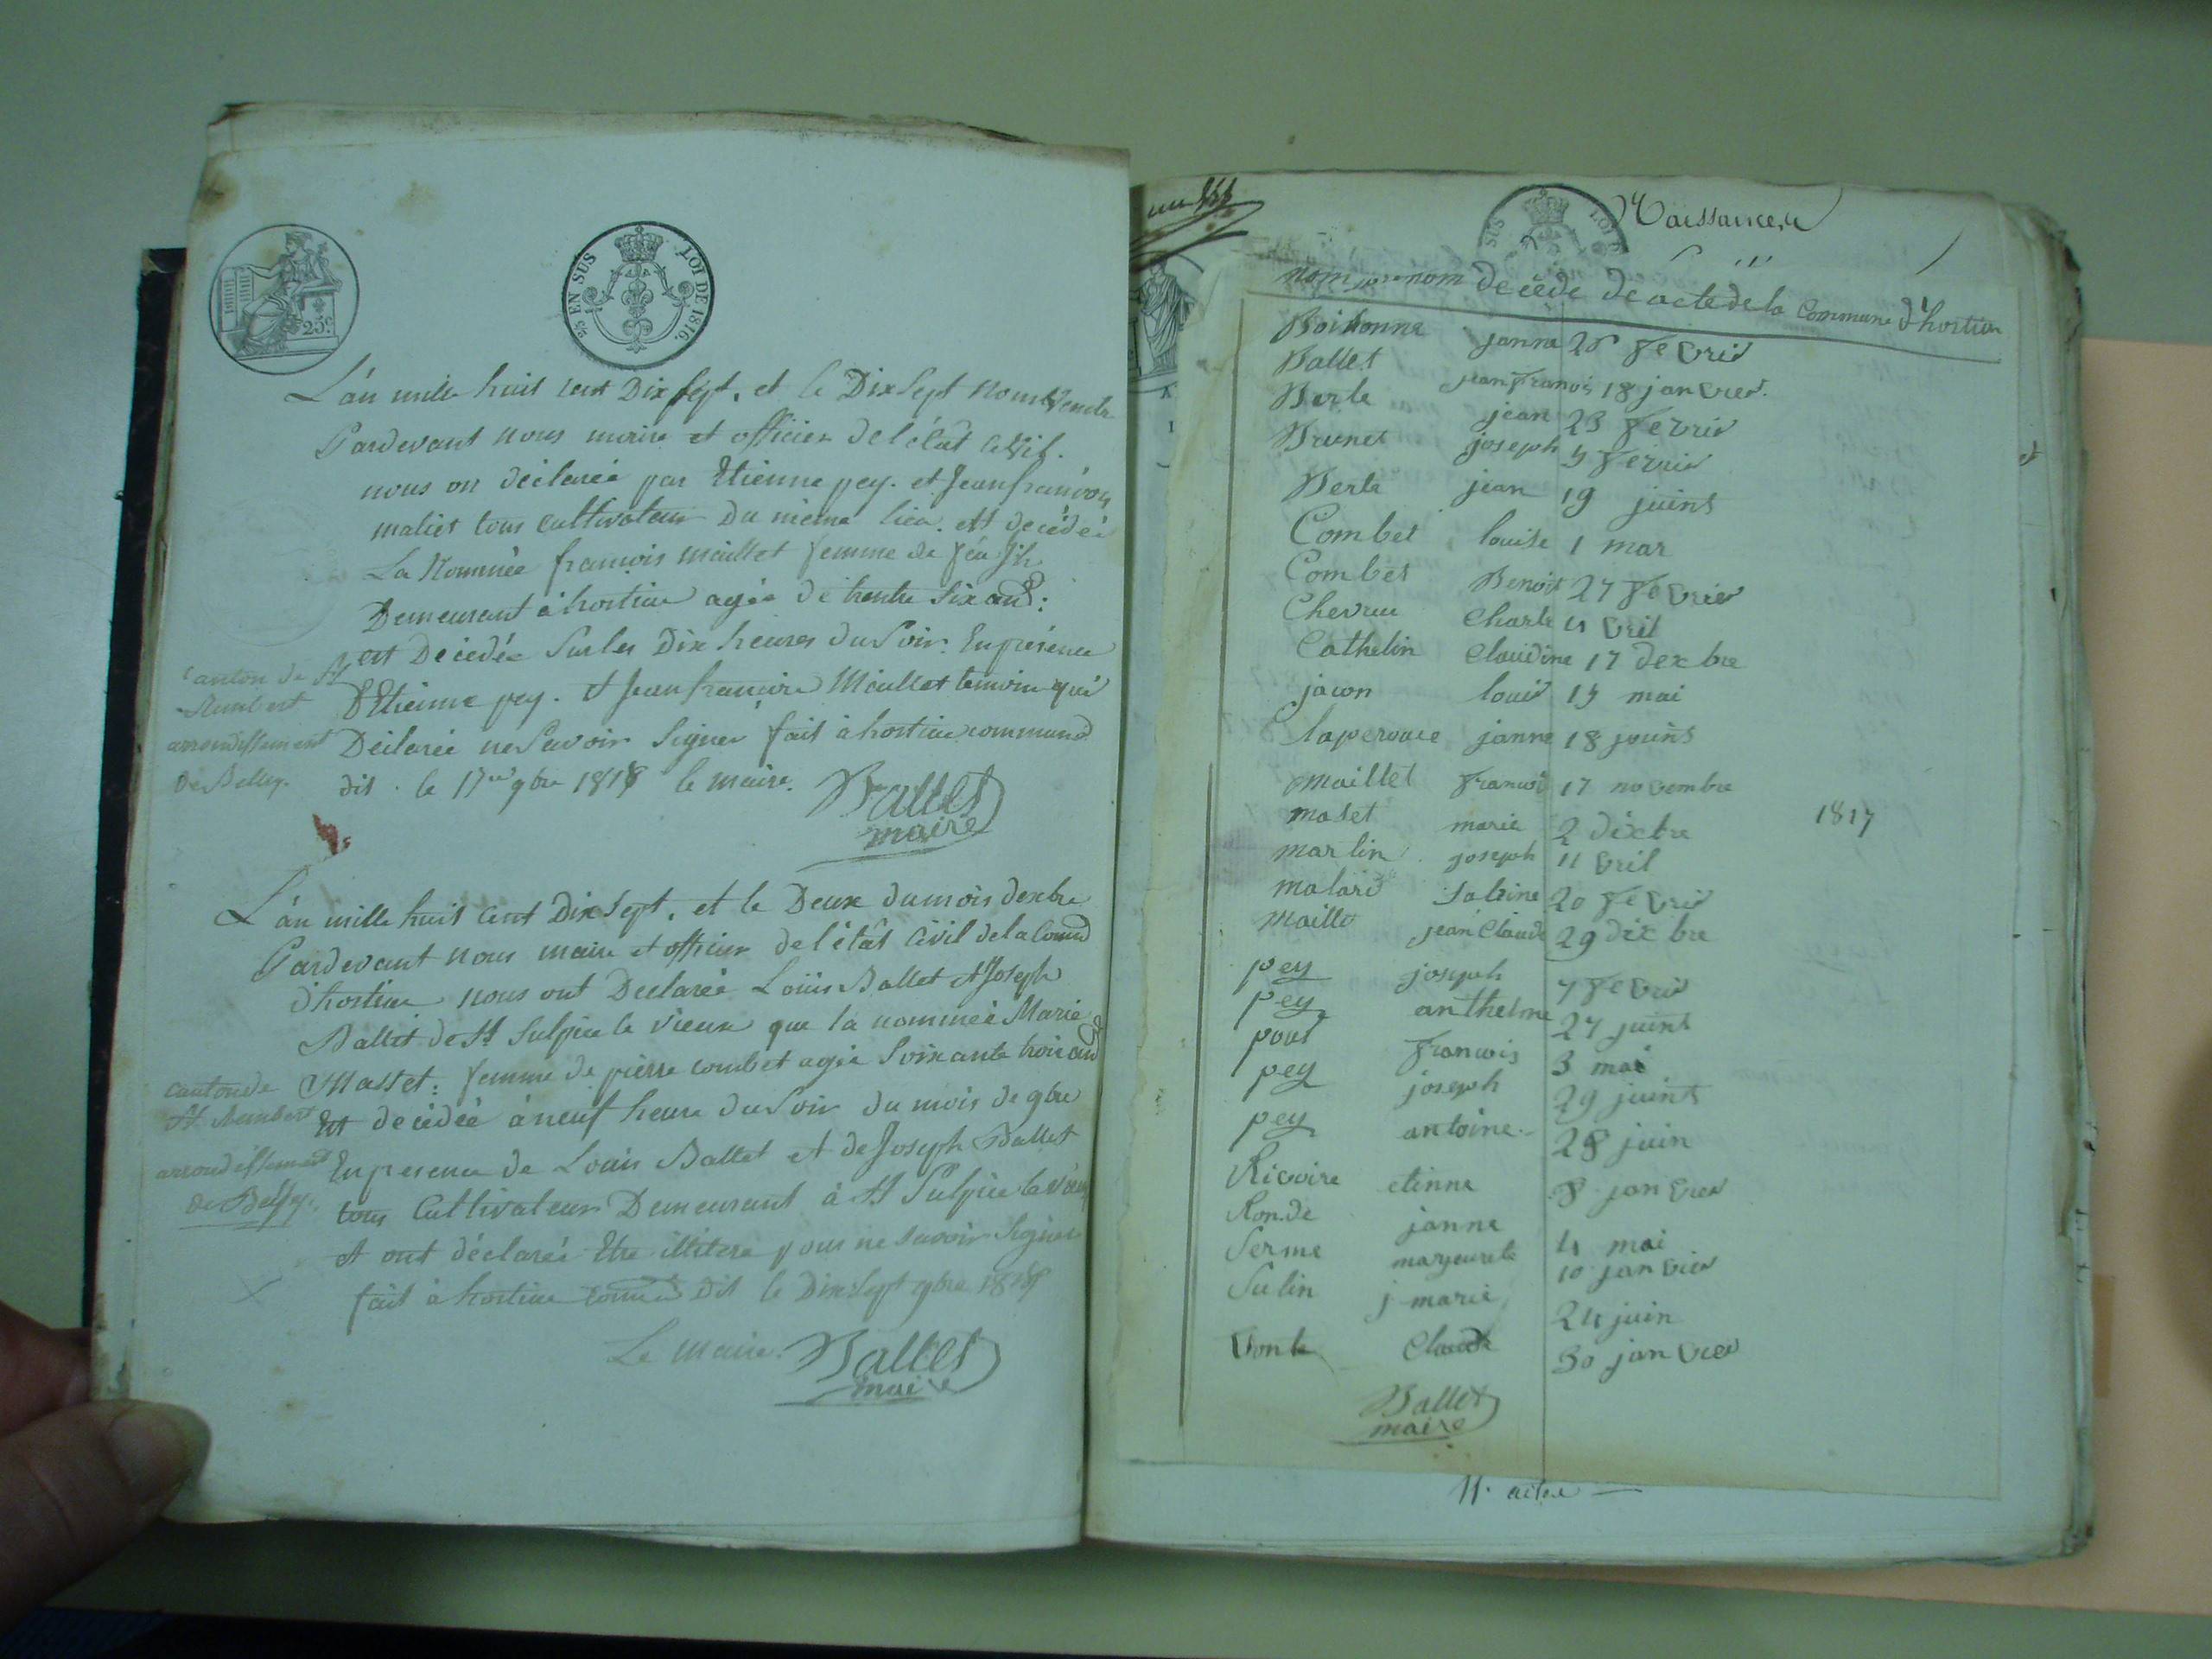 25 EN SUS LOI DE 1816
25c
L'án mille huit cent Dix sept, et le Dix Sept
Pardevant nous maire et officier de l'état civil.
nous on déclareé par Etienne pey. et Jean françois
maliet tous cultivateur Du même lieu. est decédeé
La Nommeé françois maillet femme de féu
Demeurant á hostiae ageé de trente six and:
est Décédeé Sur les Dix heures Du Soir. En présence
d'Etienne pey. et Jean françois Maillet temoin qui
Déclareé ne Savoir Signer fait à hostiae commune
dit. le 17me 9bre 1818 le maire. Ballet
maire
Canton de St
Rambert
arrondissement
De Belley.
L'án mille huit cent Dix Sept, et le Deux du mois dexbre
Pardevant nous maire et officier de l'état Civil de la Comd
d'hostiae nous ont Declareé Louis Ballet et Joseph
Ballet de St Sulpice le vieux que la nommeé Marie
Masset: femme de pierre combet ageé Soixante trois and
Est decédeé á neuf heure du Soir du mois de 9bre
En presence de Louis Ballet et de Joseph Ballet
tous Cultivateur Demeurant à St Sulpice le vieux
et ont déclareé Etre illitere pour ne savoir Signer
fait à hostiae Dit le Dix Sept 9bre 1818
Le Maire. Ballet
maire
canton de
St Rambert
arrondissement
de Belley.
SUS LOI
Naissances
nom prenom decéde de acte de la Commune d'hostiae
Boisonne janne 26 fevrier
Ballet jean francois 18 janvier.
Berle jean 23 fevrier
Brunet joseph 9 fevrier
Berle jean 19 juins
Combet louise 1 mar
Combet Benoit 27 fevrier
Chevreu Charle 4 vril
Cathelin Claudine 17 dexbre
jacon louis 19 mai
laperouce janne 18 jouins
maillet francois 17 novembre
maset marie 2 dixbre 1817
martin joseph 11 vril
malard Sabine 20 fevrier
maillet jean Claude 29 dixbre
pey joseph 7 fevrier
pey anthelme 27 juins
francois 3 mai
pey joseph 29 juins
pey antoine. 28 juin
Rivoire etienne 8 janvier
Ronde janne 4 mai
Serme marguerite 10 janvier
Sulin j marie 24 juin
Claude 30 janvier
Ballet
maire
11. actes